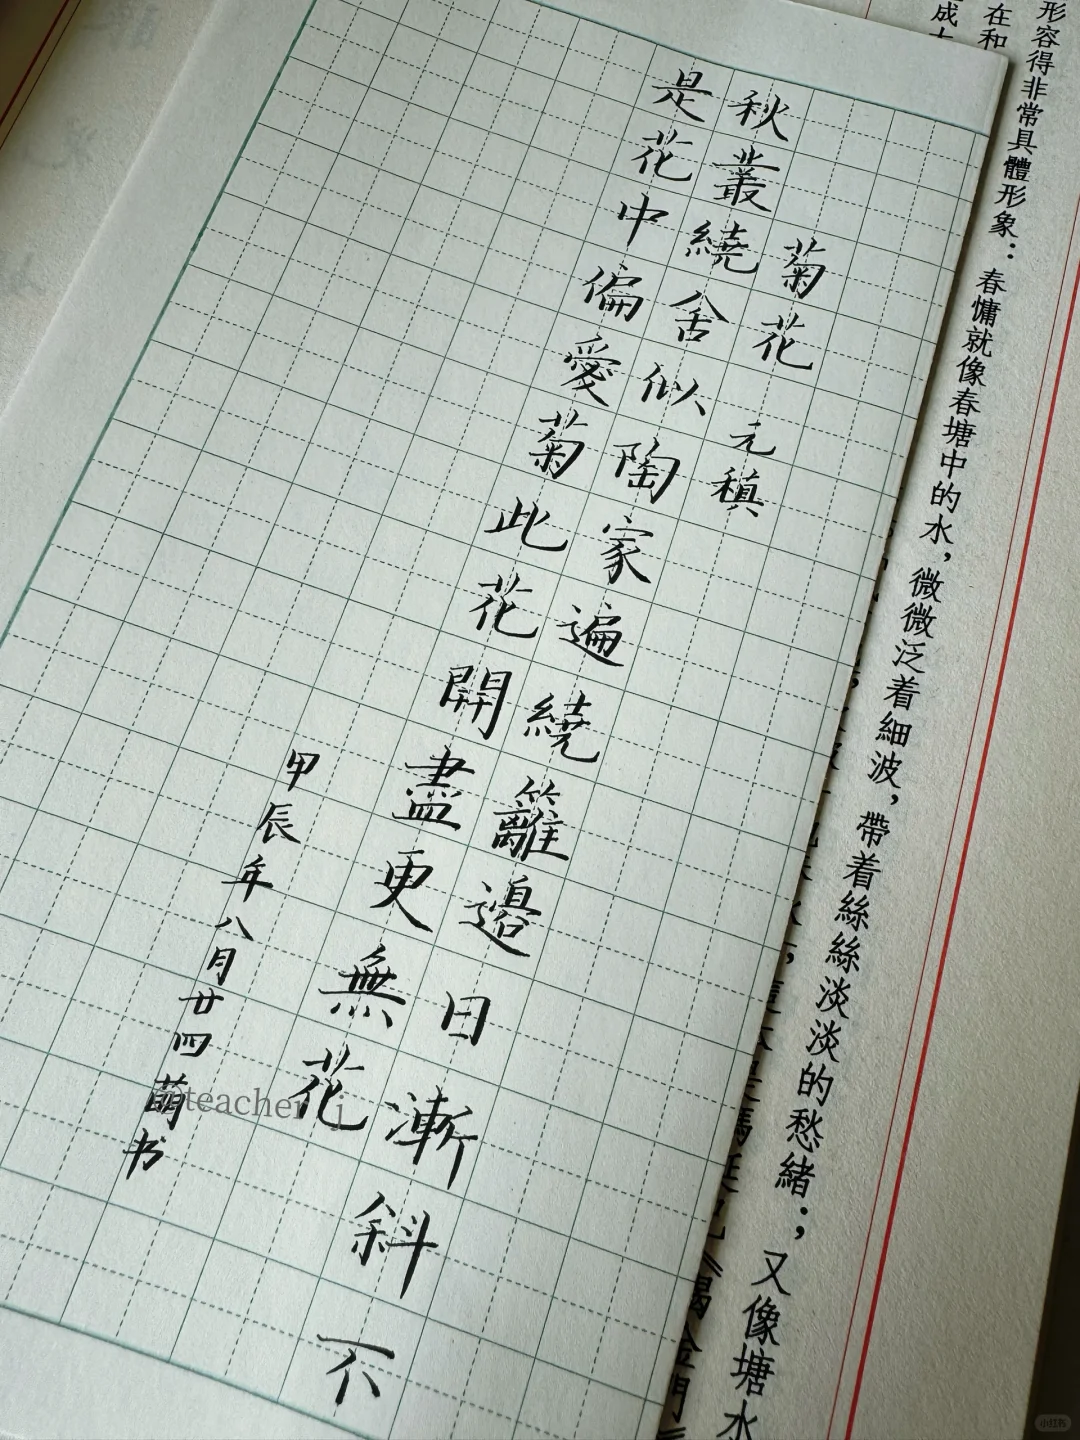 形容得非常具體形象：春慵就像春塘中的水，微微泛着細波，帶着絲絲淡淡的愁緒；又像塘水
在和
菊花 元稹
秋叢繞舍似陶家遍繞籬邊日漸斜不
是花中偏愛菊此花開盡更無花
甲辰年八月廿四萌书
@teacher_j
小红书